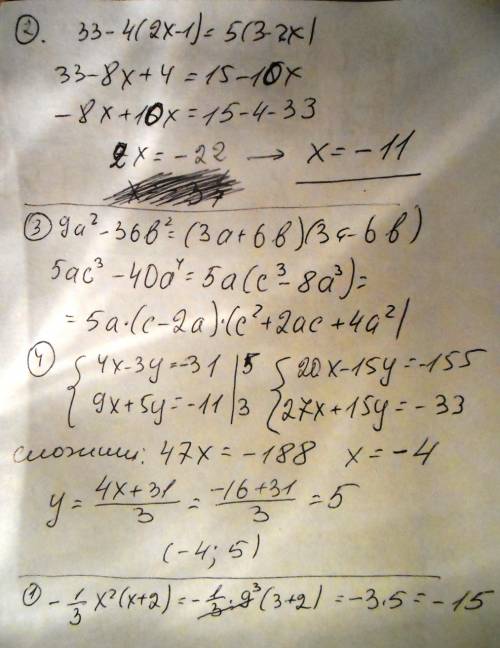 2. 33-4(2x-1)=5(3-2x)
33-8x+4=15-10x
-8x+10x=15-4-33
2x=-22 → x=-11
3 9a²-36в²=(3a+6в)(3a-6в)
5ac³-40a⁴=5a(c³-8a³)=
=5a·(c-2a)·(c²+2ac+4a²)
4 {4x-3y=-31 |5 {20x-15y=-155
{9x+5y=-11 |3 {27x+15y=-33
сложим: 47x=-188 x=-4
y=(4x+31)/3=(-16+31)/3=5
(-4; 5)
1 -1/3 x²(x+2)=-1/3·9³(3+2)=-3·5=-15